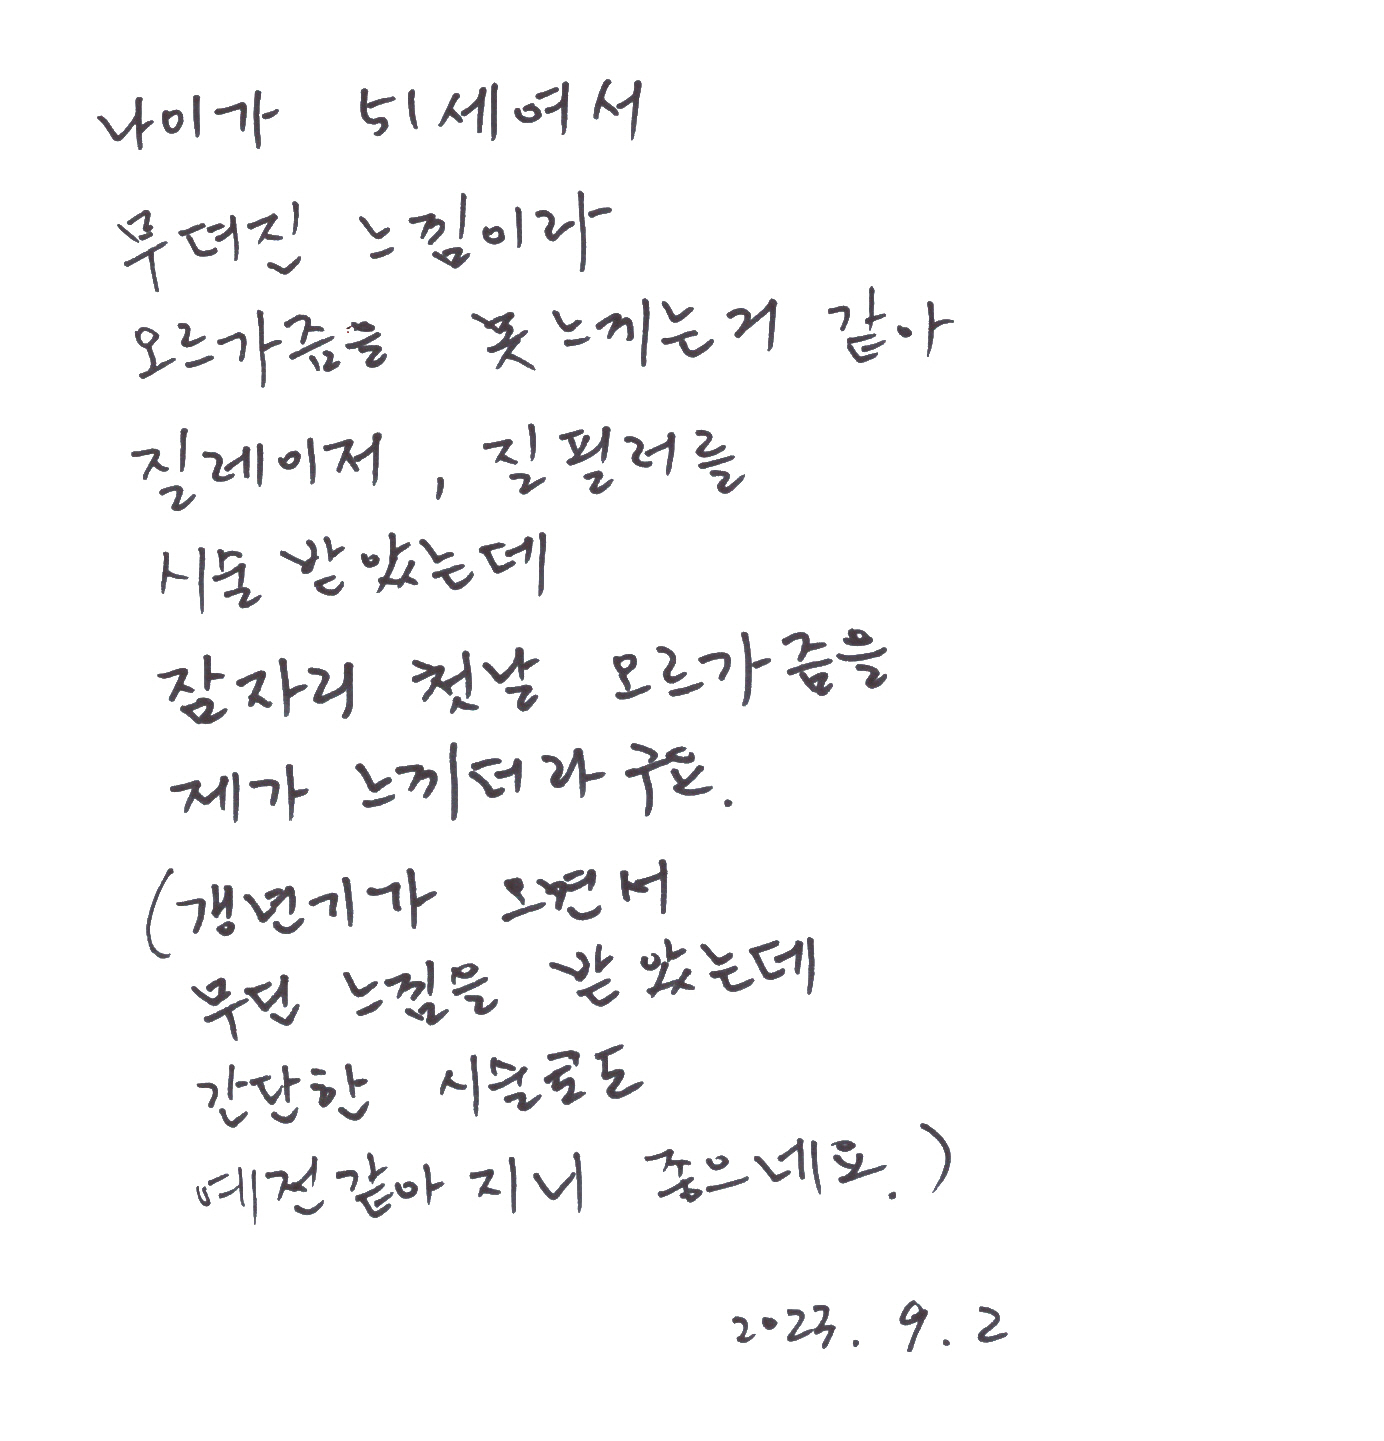 나이가 51세여서
무뎌진 느낌이라
오르가즘을 못느끼는거 같아
질레이저, 질필러를
시술 받았는데
잠자리 첫날 오르가즘을
제가 느끼더라구요.
(갱년기가 오면서
무딘 느낌을 받았는데
간단한 시술로도
예전같아 지니 좋으네요.)
2023. 9. 2